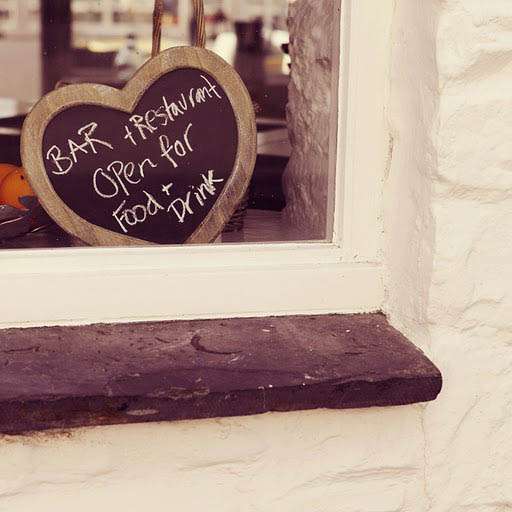 BAR + Restaurant
Open for
Food +
Drink